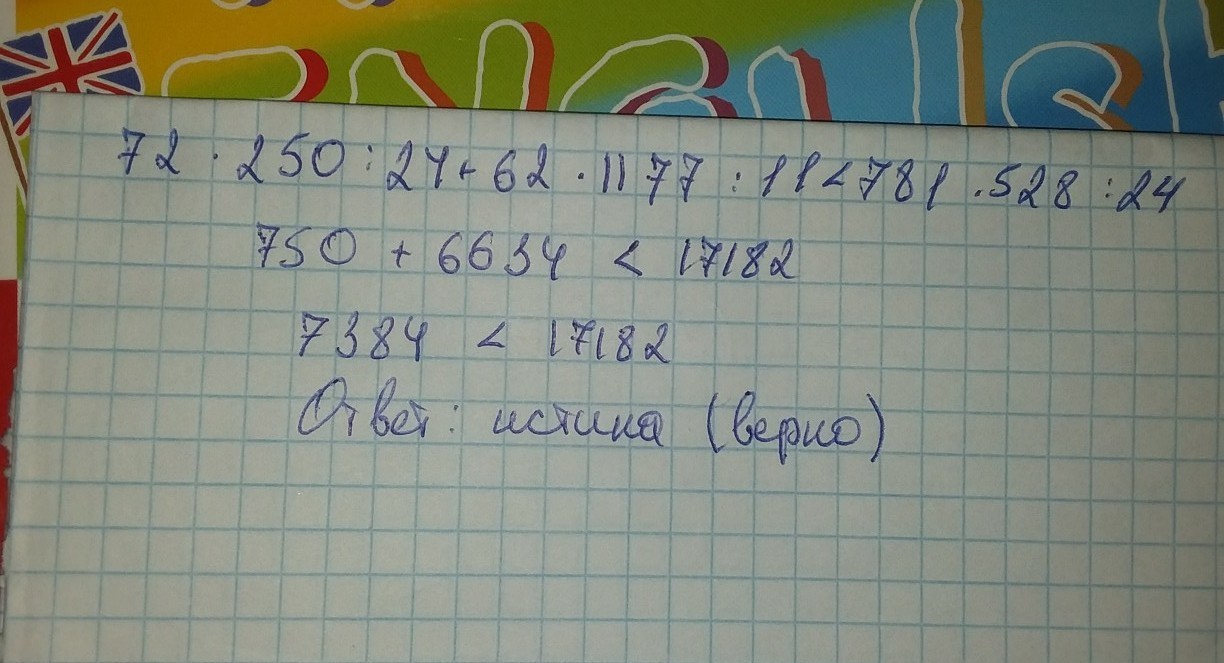 72 · 250 : 24 + 62 · 1177 : 11 < 781 · 528 : 24
750 + 6634 < 17182
7384 < 17182
Ответ: истина (верно)